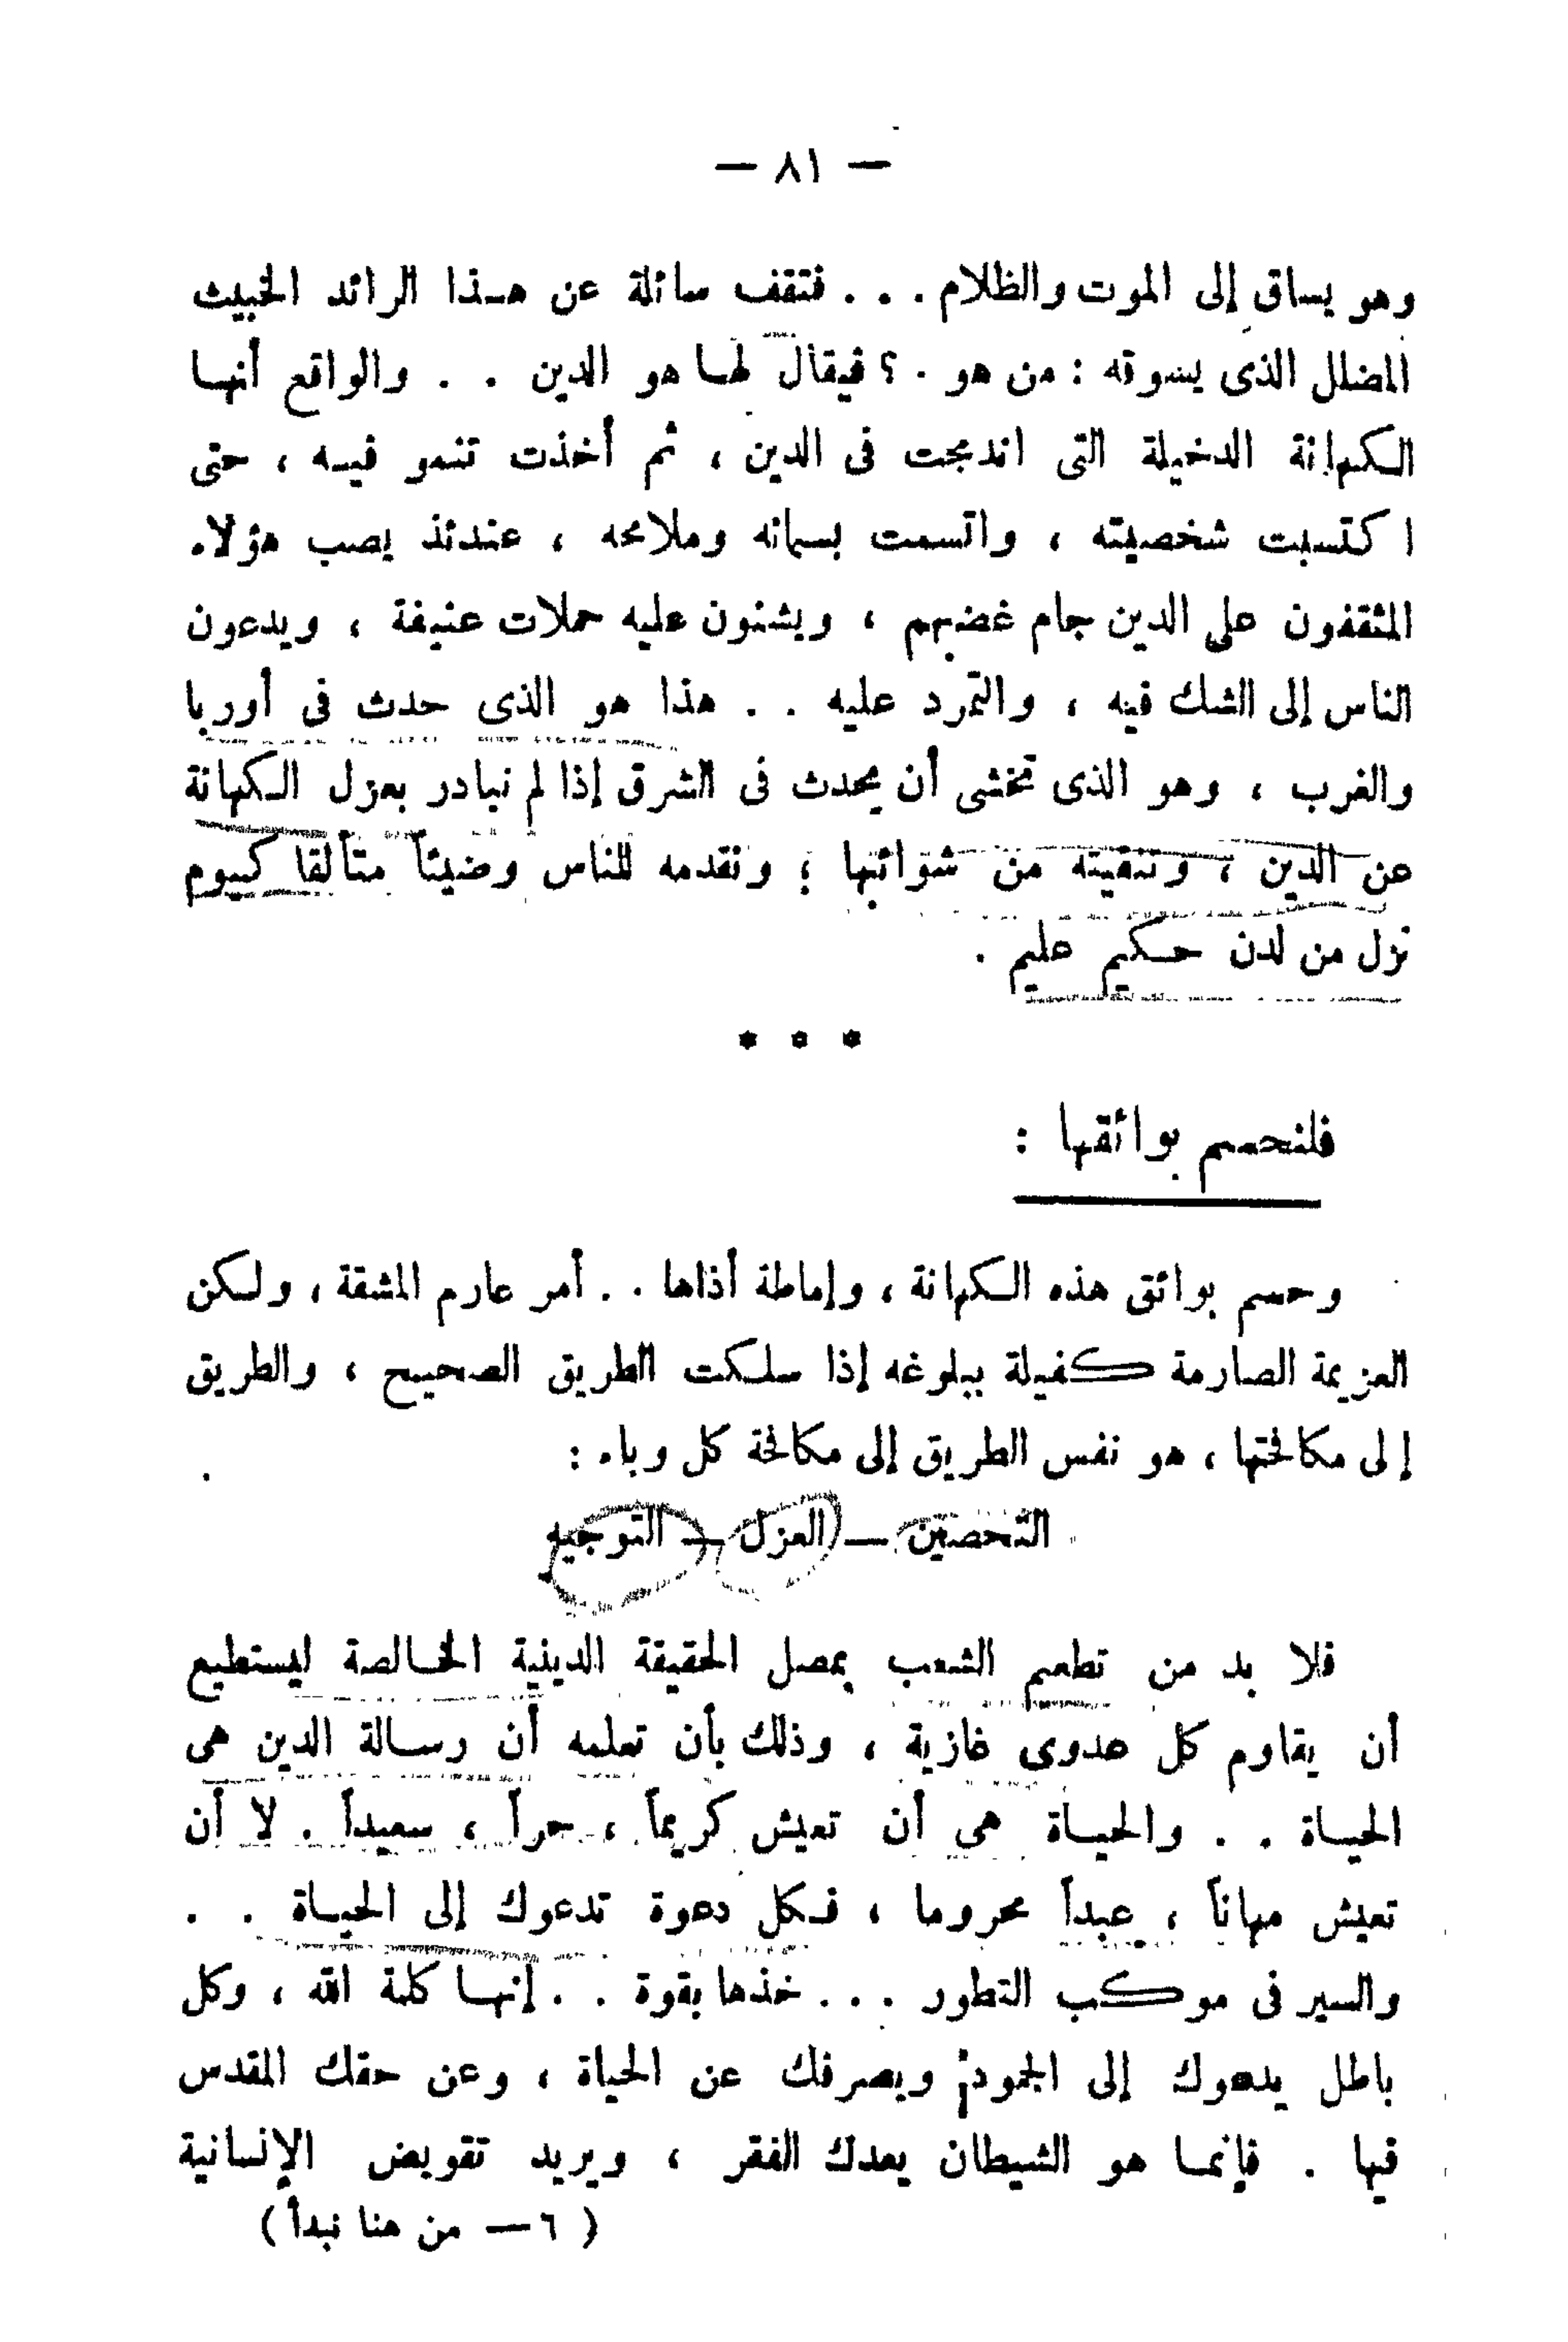 — ٨١ —
وهو يساق إلى الموت والظلام . . . فتقف سائلة عن هـذا الرائد الخبيث
المضلل الذى يسوقه : من هو . ؟ فيقال لهـا هو الدين . . والواقع أنهـا
الكهانة الدخيلة التى اندمجت فى الدين ، ثم أخذت تنمو فيـه ، حتى
اكتسبت شخصيته ، واتسمت بسماته وملامحه ، عندئذ يصب هؤلاء
المثقفون على الدين جام غضبهم ، ويشنون عليه حملات عنيفة ، ويدعون
الناس إلى الشك فيه ، والتمرد عليه . . هذا هو الذى حدث فى أوربا
والغرب ، وهو الذى نخشى أن يحدث فى الشرق إذا لم نبادر بعزل الكهانة
عن الدين ، وتنقيته من شوائبها ؛ ونقدمه للناس وضيئاً متألقا كيوم
نزل من لدن حكيم عليم .
* * *
فلنحسم بوائقها :
وحسم بوائق هذه الكهانة ، وإماطة أذاها . . أمر عارم المشقة ، ولكن
العزيمة الصارمة كفيلة ببلوغه إذا سلكت الطريق الصحيح ، والطريق
إلى مكافحتها ، هو نفس الطريق إلى مكافحة كل وباء :
التحصين — العزل — التوجيه
فلا بد من تطعيم الشعب بمصل الحقيقة الدينية الخـالصة ليستطيع
أن يقاوم كل عدوى غازية ، وذلك بأن تعلمه أن رسـالة الدين هى
الحيـاة . . والحيـاة هى أن تعيش كريماً ، حراً ، سعيداً . لا أن
تعيش مهاناً ، عبداً محروما ، فـكل دعوة تدعوك إلى الحيـاة . .
والسير فى موكب التطور . . . خذها بقوة . . إنهـا كلمة الله ، وكل
باطل يدعوك إلى الجمود ؛ ويصرفك عن الحياة ، وعن حقك المقدس
فيها . فإنمـا هو الشيطان يعدك الفقر ، ويريد تقويض الإنسانية
( ٦ — من هنا نبدأ )